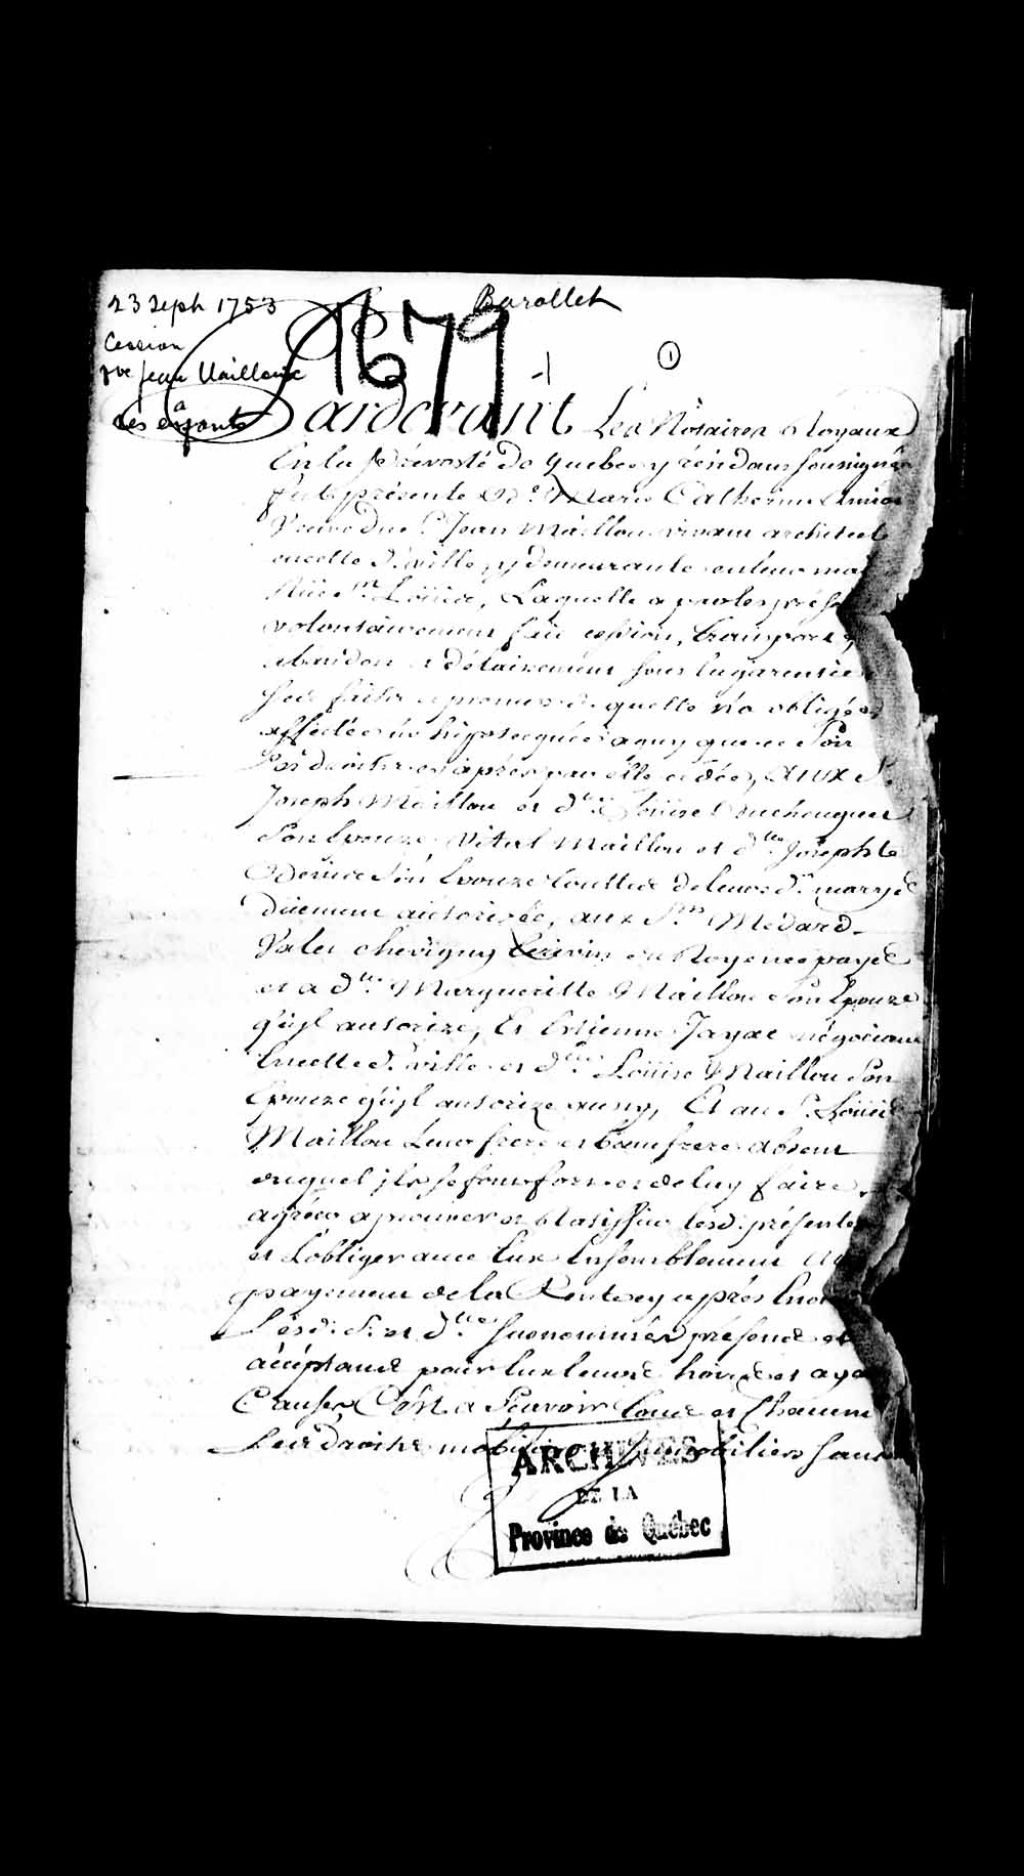 23 Septr 1753
Barollet
Cession
1679
1
vve Jean Maillou
a
ses enfants
Pardevant Les Notaires Royaux
En la prevosté de Quebec y residans soussignés
fut présente De Marie Catherine Amiot
Veuve du Sr Jean Maillou vivant architecte
encette d. ville y demeurante en leur mai
Rüe St Loüis, Laquelle a par les prése
volontairement fait cession, transport
abandon et délaissement sous la garentie
ses faits et promesses quelle n'a obligées
affectées né hipotequées a quy que ce soit
Les droits cy après par elle cédés, aux Sr
Joseph Maillou et dlle Loüise Duchouquet
son Epouze, Vital Maillou et dlle Josephte
son Epouze touttes deleurs d. marys
düement autorisée, aux Srs Medard
Valet Chevigny Ecrivin du Roy encepayë
et a dlle Margueritte Maillou son Epouze
qu'jl autorize, Et Estienne Jayac négociant
Encette d. ville et dlle Loüise Maillou son
Epouze qu'jl autorize aussy, Et au Sr Loüis
Maillou Leur frere et beaufrere absent
duquel jls se font fort et deluy faire
agréer aprouver et Ratiffier lesd. présentes
et Lobliger avec Eux Ensemblement au
payement de la Rente cy après Enon
Lesd. Srs et dlles susnommés présens et
acceptans pour Eux leurs hoirs et aya
Causes C'est a Scavoir tous et Chacuns
Les droits mobiliers et Immobiliers sans
ARCHIVES
DE LA
Province de Québec